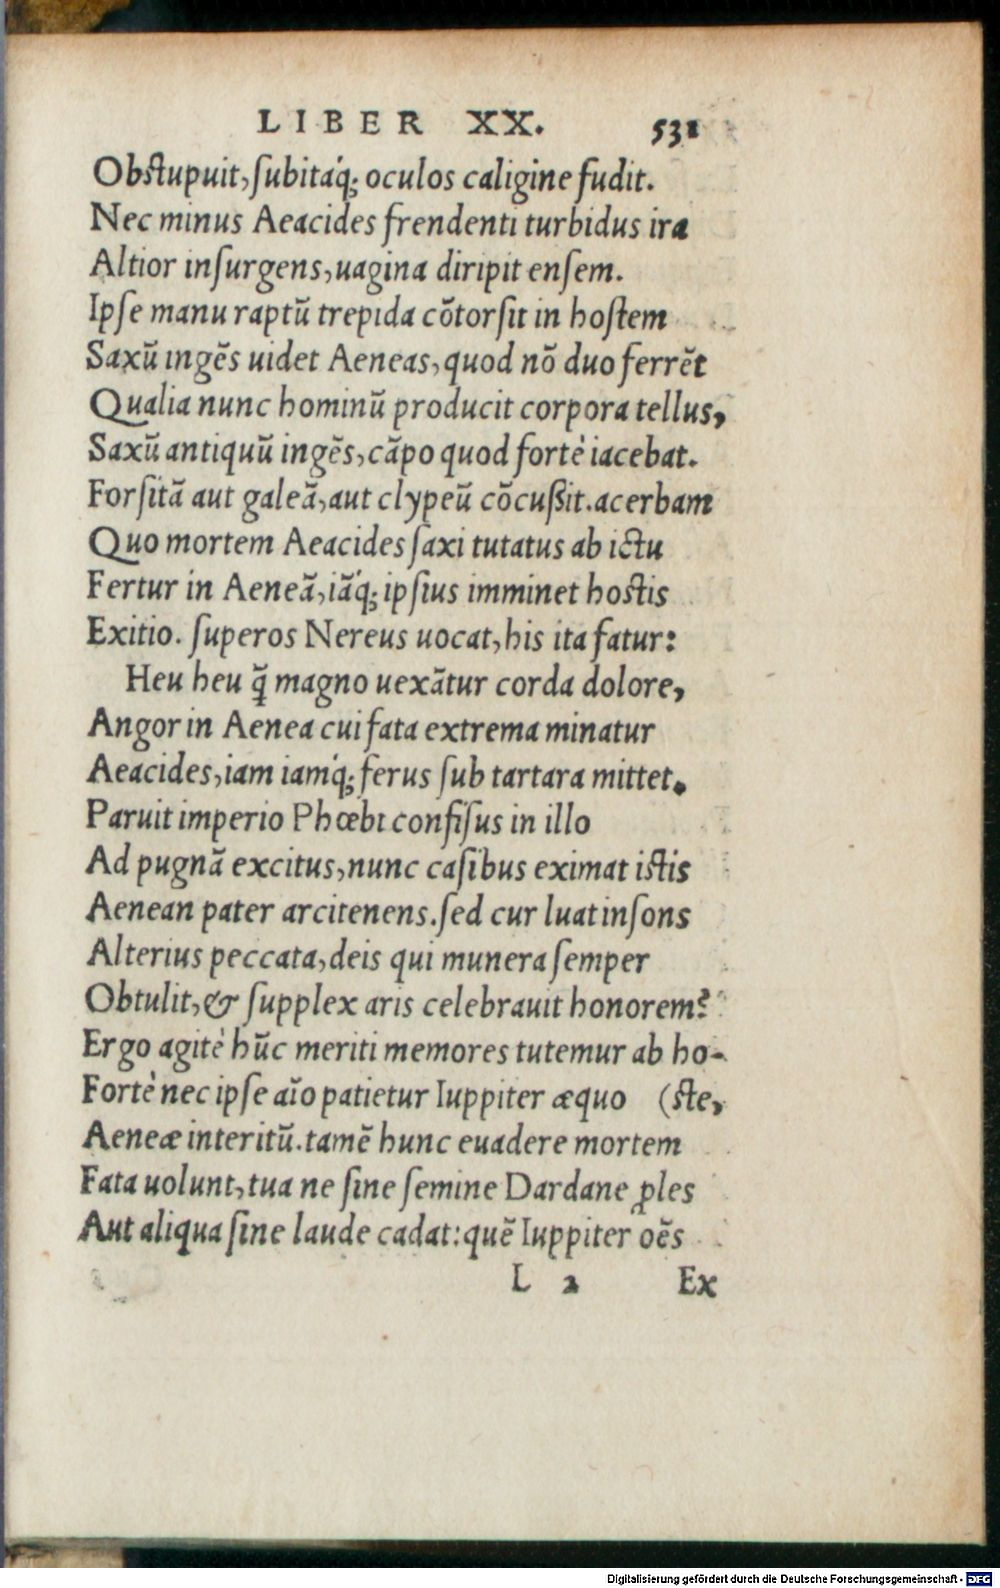 LIBER XX. 531
Obstupuit, subitáq́; oculos caligine fudit.
Nec minus Aeacides frendenti turbidus ira
Altior insurgens, uagina diripit ensem.
Ipse manu raptū trepida cōtorsit in hostem
Saxū ingēs uidet Aeneas, quod nō duo ferrēt
Qualia nunc hominū producit corpora tellus,
Saxū antiquū ingēs, cāpo quod fortè iacebat.
Forsitā aut galeā, aut clypeū cōcußit. acerbam
Quo mortem Aeacides saxi tutatus ab ictu
Fertur in Aeneā, iāq́; ipsius imminet hostis
Exitio. superos Nereus uocat, his ita fatur:
Heu heu q̄̃ magno uexātur corda dolore,
Angor in Aenea cui fata extrema minatur
Aeacides, iam iamq́; ferus sub tartara mittet.
Paruit imperio Phœbi confisus in illo
Ad pugnā excitus, nunc casibus eximat istis
Aenean pater arcitenens. sed cur luat insons
Alterius peccata, deis qui munera semper
Obtulit, & supplex aris celebrauit honorem?
Ergo agitè hūc meriti memores tutemur ab ho-
Fortè nec ipse aīo patietur Iuppiter æquo (ste,
Aeneæ interitū. tamē hunc euadere mortem
Fata uolunt, tua ne sine semine Dardane ꝓles
Aut aliqua sine laude cadat: quē Iuppiter oēs
L 2 Ex
Digitalisierung gefördert durch die Deutsche Forschungsgemeinschaft - DFG